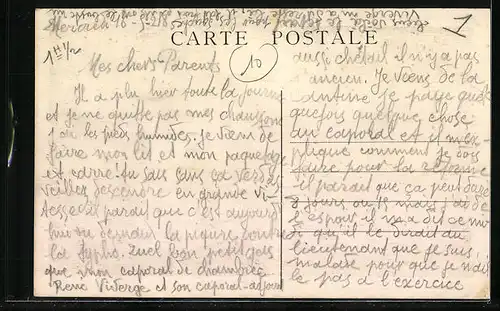 CARTE POSTALE
10
1
Mes chers Parents
Il a plu hier toute la journée
et je ne quitte pas mes chaussons
j'ai les pieds humides. Je viens de
faire mon lit et mon paquetage
est carré. Tu sais sans ça
descendre en grande vi-
tesse il parait que c'est aujourd
hui ou demain la piqure contre
la typho. Quel bon petit gars
que mon caporal de chambrée
René Viverge et son caporal-adjoint
aussi chétail il n'y a pas
d'ancien. Je viens de la
cantine je paye quel-
quefois quelque chose
au caporal et il m'ex
plique comment je dois
faire pour la réforme
il parait que ça peut durer
8 jours ou 15 mais j'ai de
l'espoir il m'a dit ce ma
ti qu'il le dirait au
lieutenant que je suis
malade pour que je n'aille
pas à l'exercice